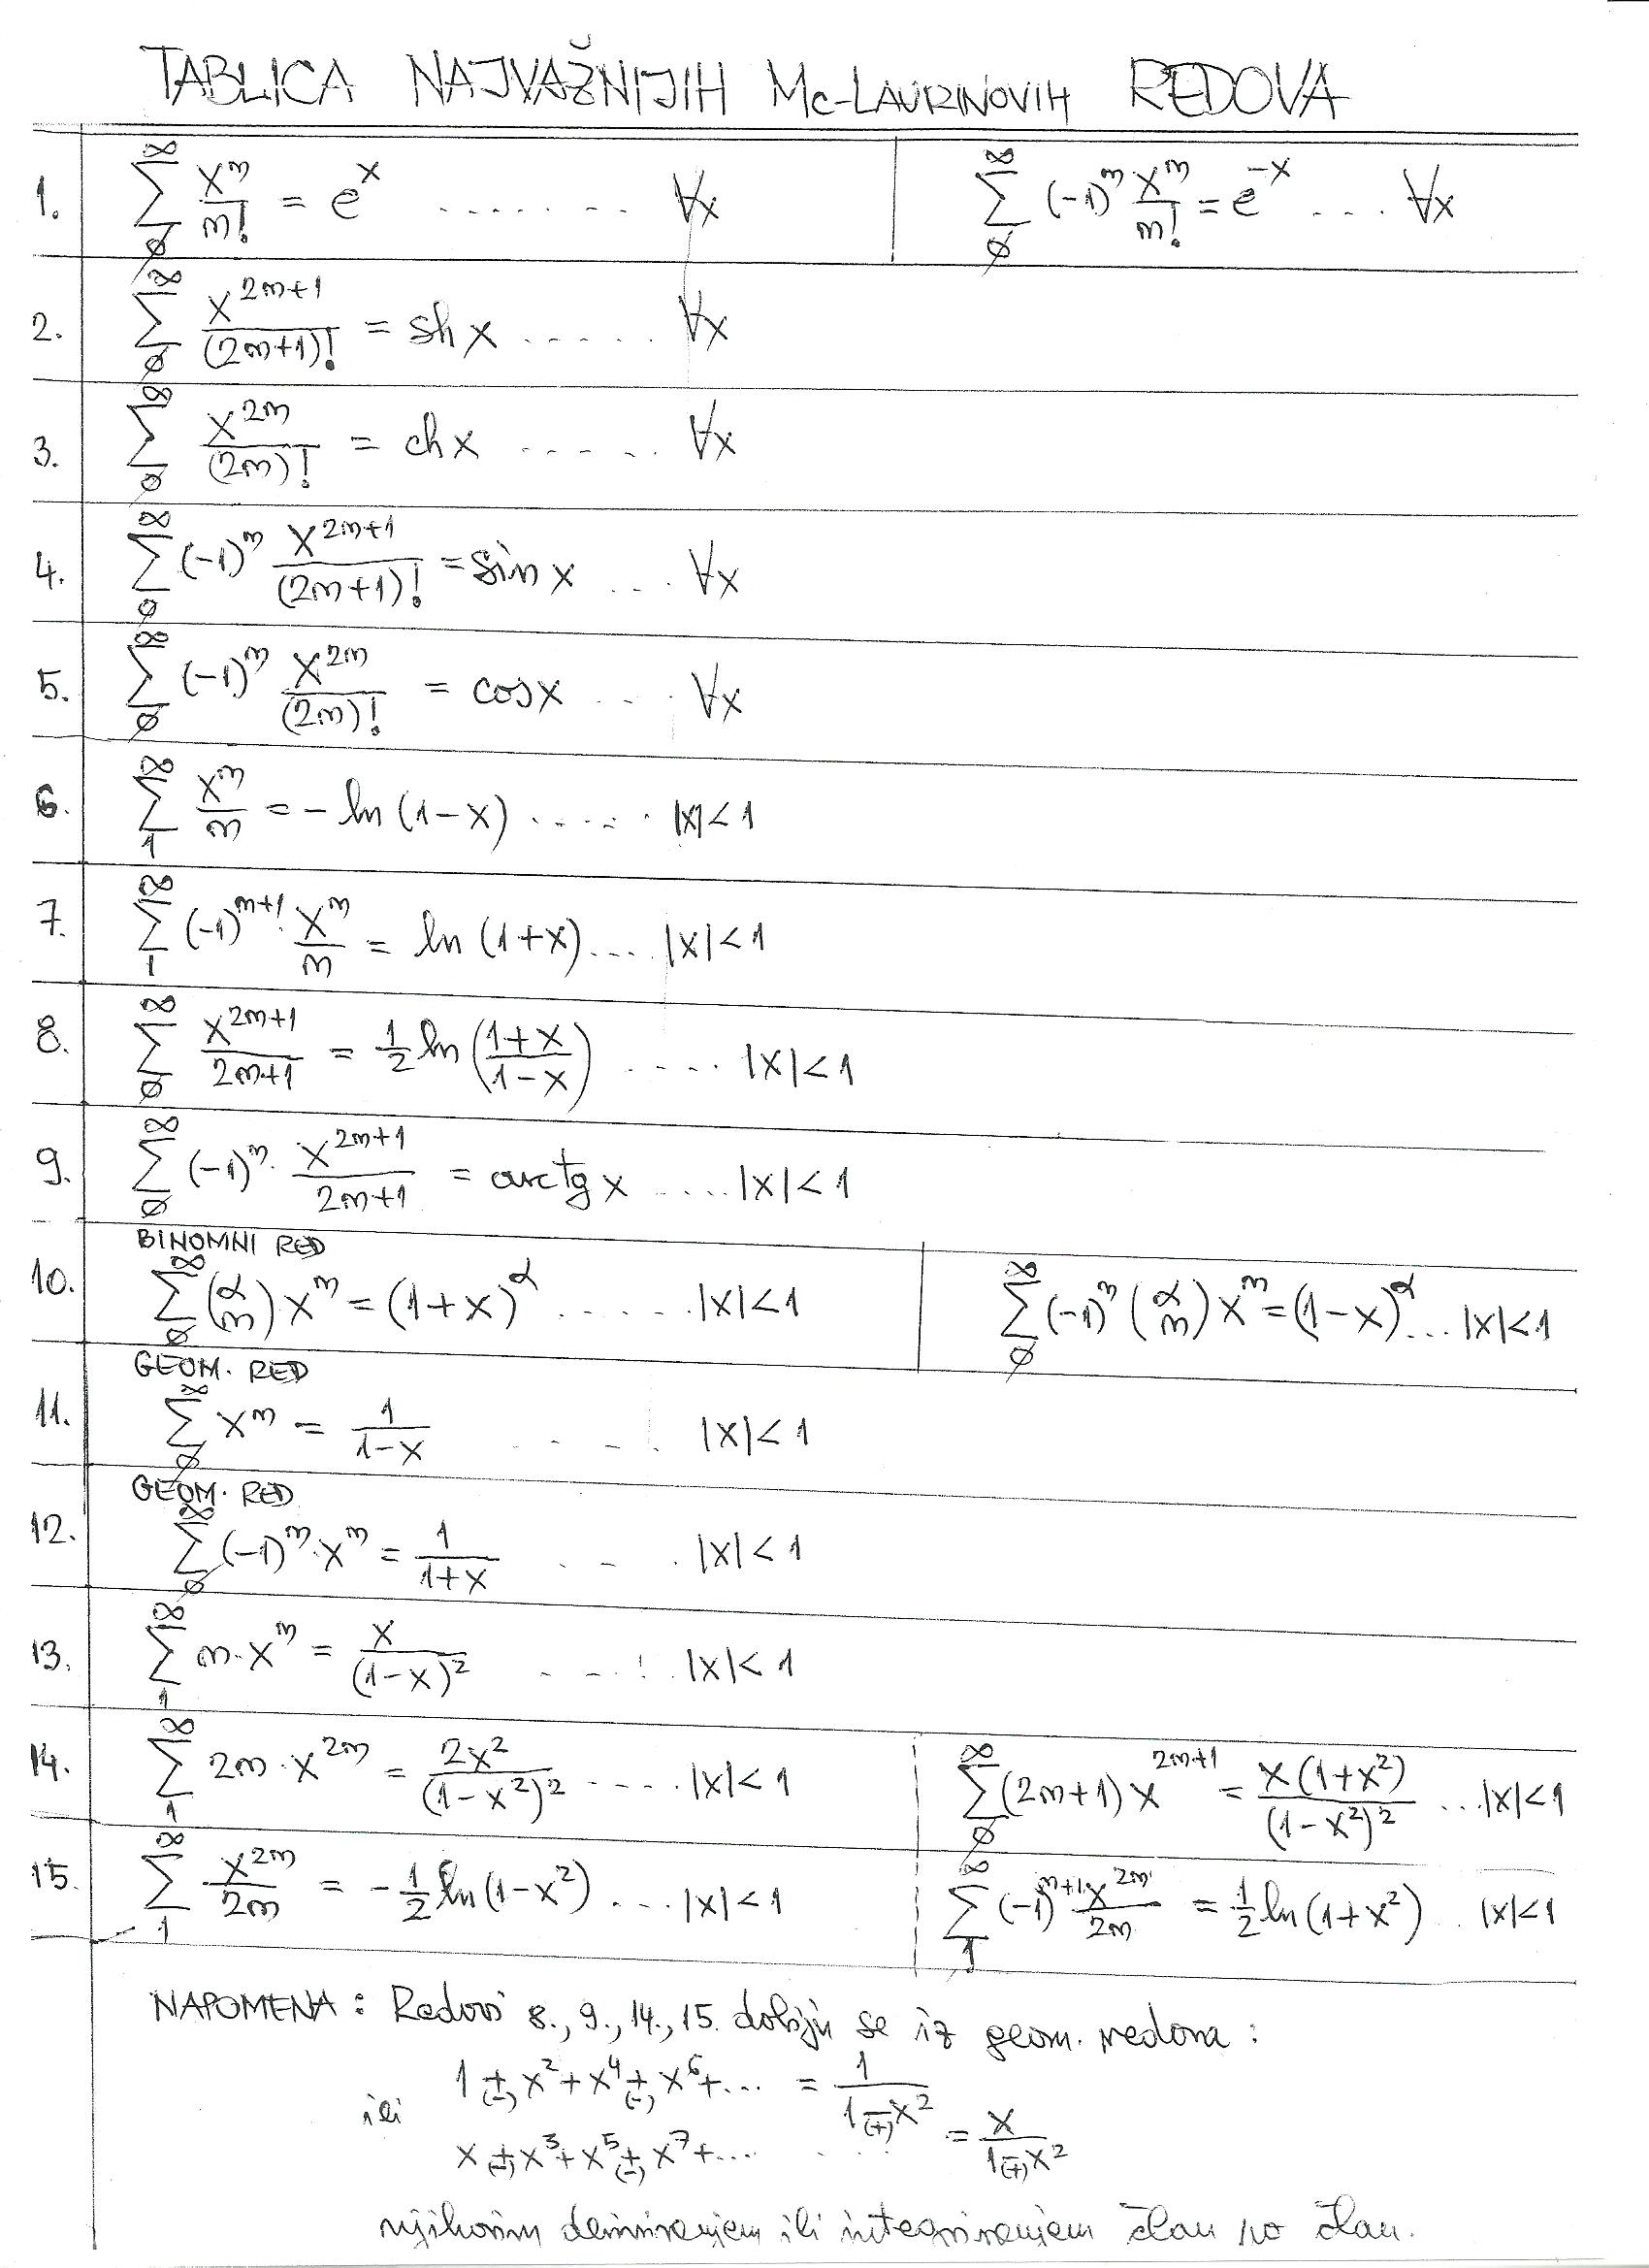 TABLICA NAJVAŽNIJIH Mc-LAURINOVIH REDOVA
1. ∑_0^∞ x^n/n! = e^x ........ ∀x ∑_0^∞ (-1)^n x^n/n! = e^-x .... ∀x
2. ∑_0^∞ x^(2n+1)/(2n+1)! = sh x ...... ∀x
3. ∑_0^∞ x^(2n)/(2n)! = ch x ...... ∀x
4. ∑_0^∞ (-1)^n x^(2n+1)/(2n+1)! = sin x ... ∀x
5. ∑_0^∞ (-1)^n x^(2n)/(2n)! = cos x .... ∀x
6. ∑_1^∞ x^n/n = - ln (1-x) ...... |x|<1
7. ∑_1^∞ (-1)^(n+1) · x^n/n = ln (1+x) .... |x|<1
8. ∑_0^∞ x^(2n+1)/2n+1 = 1/2 ln (1+x/1-x) ..... |x|<1
9. ∑_0^∞ (-1)^n · x^(2n+1)/2n+1 = arctg x ..... |x|<1
BINOMNI RED
10. ∑_0^∞ (α n) · x^n = (1+x)^α ...... |x|<1 ∑_0^∞ (-1)^n (α n) x^n = (1-x)^α ... |x|<1
GEOM. RED
11. ∑_0^∞ x^n = 1/1-x .... |x|<1
GEOM. RED
12. ∑_0^∞ (-1)^n · x^n = 1/1+x ... |x|<1
13. ∑_1^∞ n·x^n = x/(1-x)^2 ..... |x|<1
14. ∑_1^∞ 2n·x^(2n) = 2x^2/(1-x^2)^2 ..... |x|<1 ∑_0^∞ (2n+1) x^(2n+1) = x(1+x^2)/(1-x^2)^2 ... |x|<1
15. ∑_1^∞ x^(2n)/2n = - 1/2 ln (1-x^2) .... |x|<1 ∑_1^∞ (-1)^(n+1) · x^(2n)/2n = 1/2 ln (1+x^2) . |x|<1
NAPOMENA: Redovi 8., 9., 14., 15. dobiju se iz geom. redova:
1 +(-) x^2 + x^4 +(-) x^6 + ... = 1/1 -(+) x^2
ili
x +(-) x^3 + x^5 +(-) x^7 + ... = x/1 -(+) x^2
njihovim deriviranjem ili integriranjem član po član.